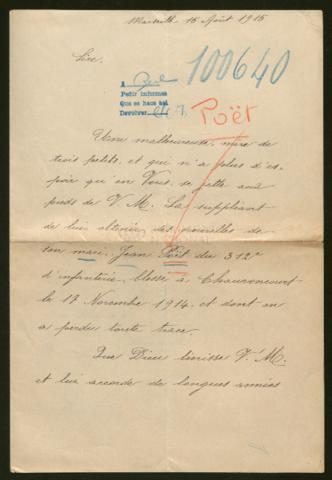 Marseille 15 Août 1915
Sire,
100640
A
Pedir informes
Que se hace así
Devolver
Poët
Une malheureuse, mère de
trois petits, et qui n'a plus d'es-
poir qu'en Vous, se jette aux
pieds de V. M. La suppliant
de lui obtenir des nouvelles de
son mari, Jean Poët du 312e
d'infanterie, blessé à Chauvoncourt
le 17 Novembre 1914, et dont on
a perdu toute trace.
Que Dieu bénisse V. M.
et lui accorde de longues années